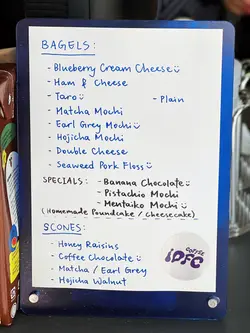 BAGELS:
- Blueberry Cream Cheese
- Ham & Cheese
- Taro - Plain
- Matcha Mochi
- Earl Grey Mochi
- Hojicha Mochi
- Double Cheese
- Seaweed Pork Floss
SPECIALS: - Banana Chocolate
- Pistachio Mochi
- Mentaiko Mochi
(Homemade Poundcake / Cheesecake)
SCONES:
- Honey Raisins
- Coffee Chocolate
- Matcha / Earl Grey
- Hojicha Walnut
COFFEE